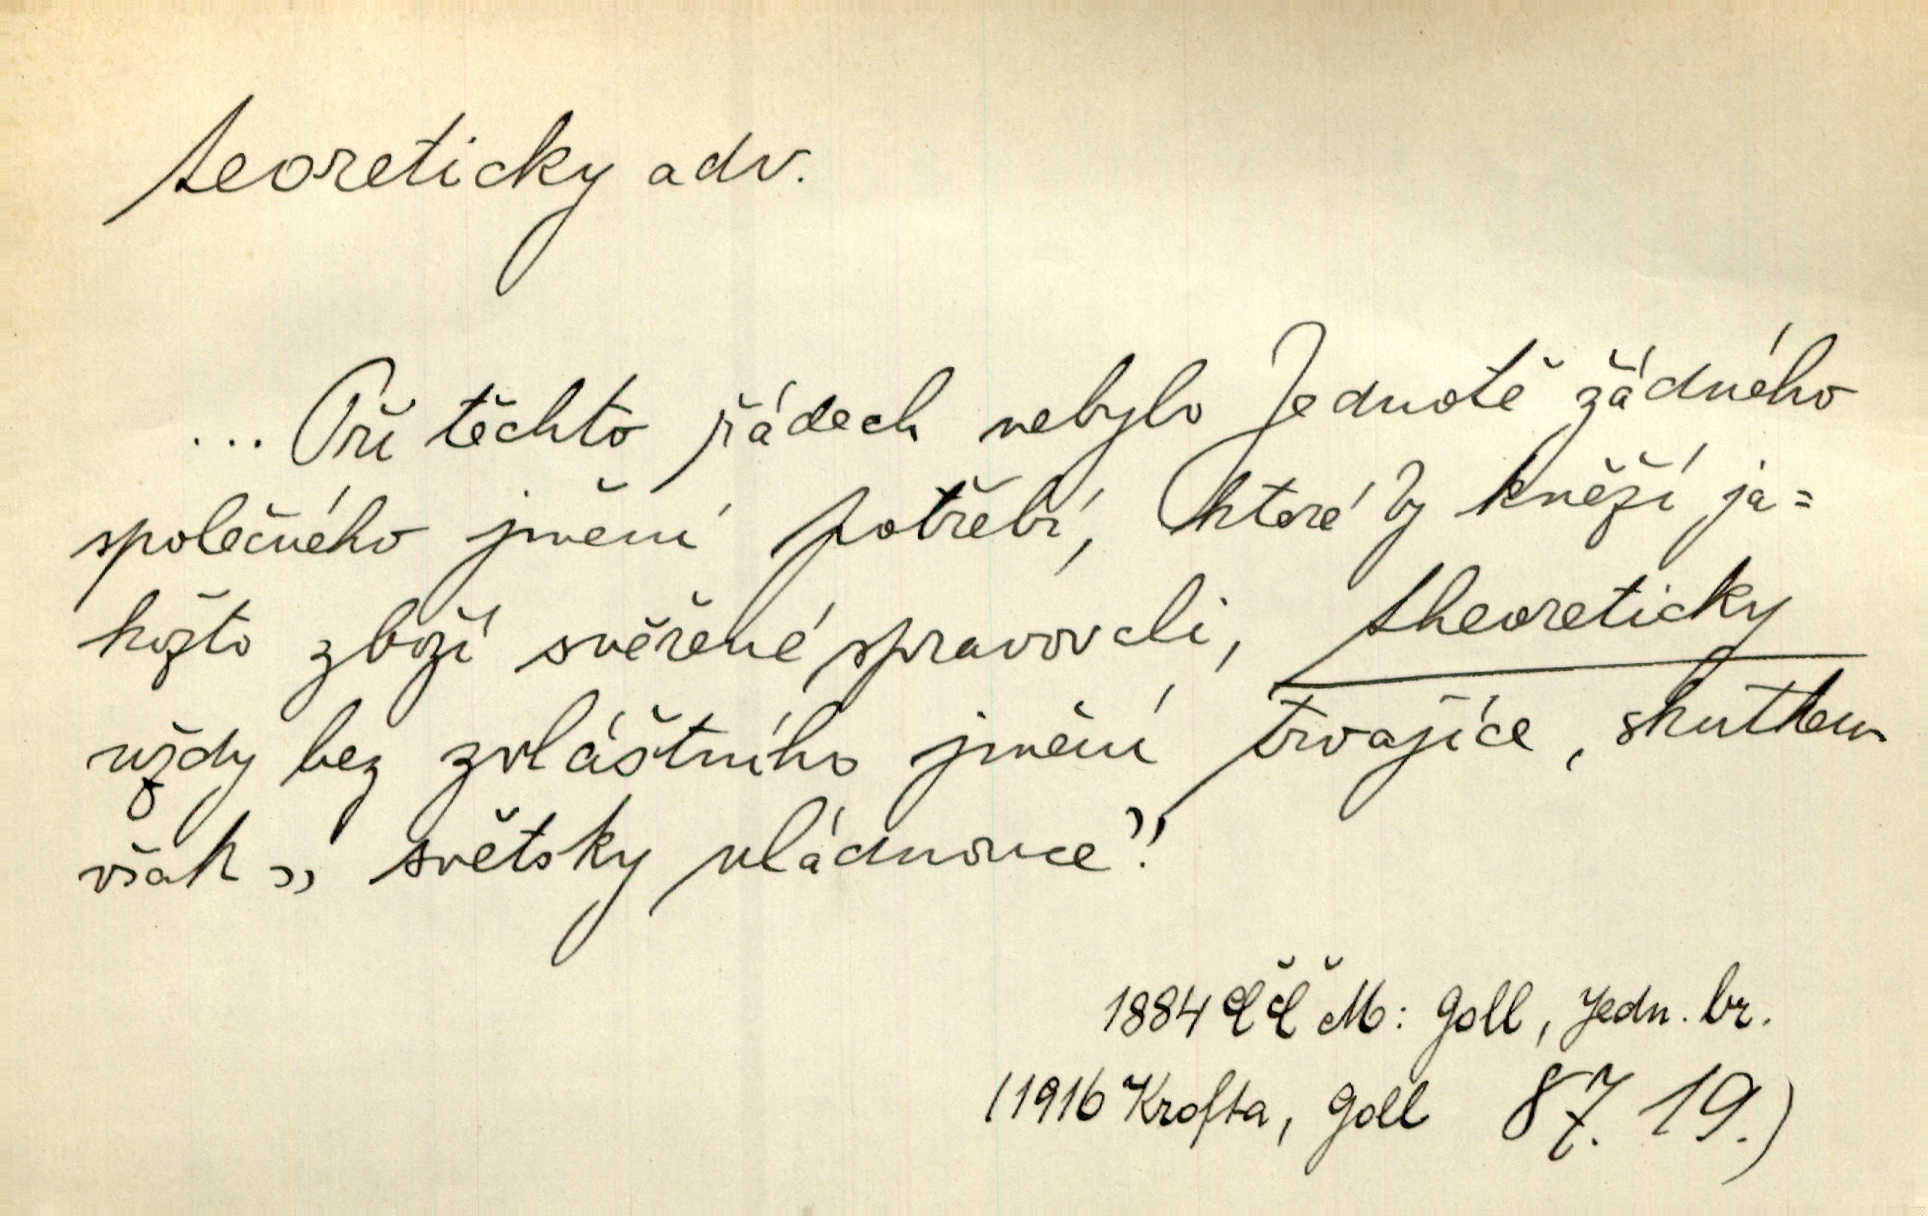 teoreticky adv.
... Při těchto řádech nebylo Jednotě žádného
společného jmění potřebí, které by kněží ja=
kožto zboží svěřené spravovali, theoreticky
vždy bez zvláštního jmění trvajíce, skutkem
však „ světsky vládnouce".
1884 ČČM: Goll, Jedn. br.
(1916 Krofta, Goll 87. 19.)